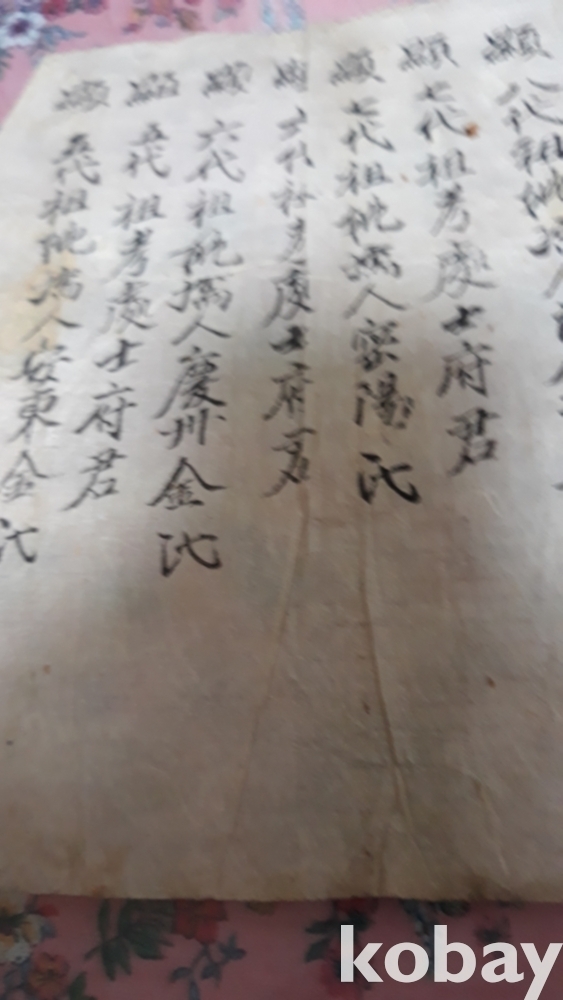 顯八代祖妣孺人
顯七代祖考處士府君
顯七代祖妣孺人密陽氏
顯六代祖考處士府君
顯六代祖妣孺人慶州金氏
顯五代祖考處士府君
顯五代祖妣孺人安東金氏
kobay